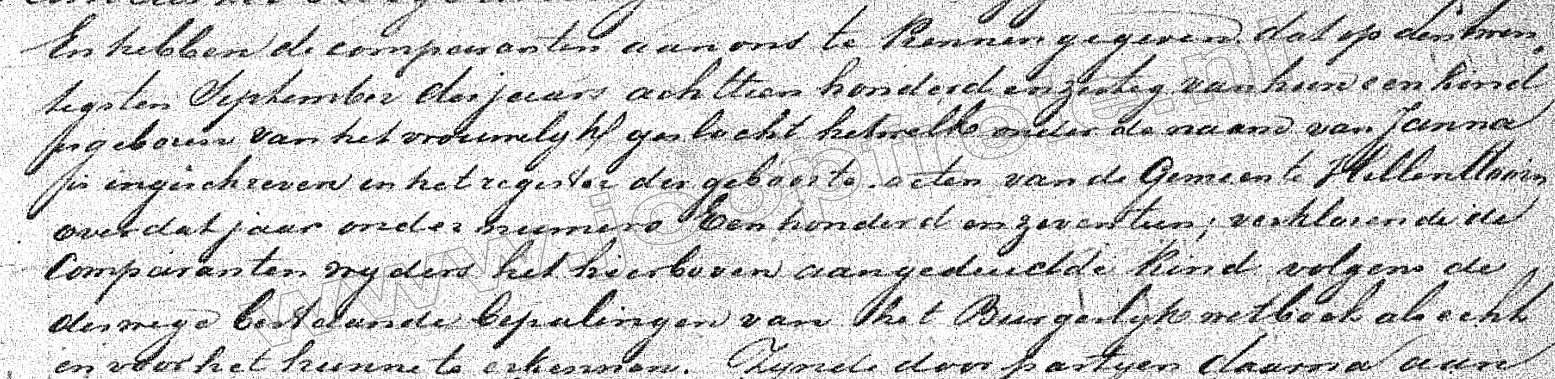 En hebben de comparanten aan ons te kennen gegeven dat op den twin-
tigsten September des jaars achttien honderd en zestig van hun een kind
is geboren van het vrouwelijk geslacht hetwelk onder de naam van Janna
is ingeschreven in het register der geboorte-acten van de Gemeente Hellendoorn
over dat jaar onder numero Een honderd en zeventien; verklarende de
Comparanten wyders het hierboven aangeduidde kind volgens de
deswege bestaande bepalingen van het Burgerlyk wetboek als echt
en voor het hunne te erkennen. Zynde door partyen daarna aan
www.jooptrof.nl